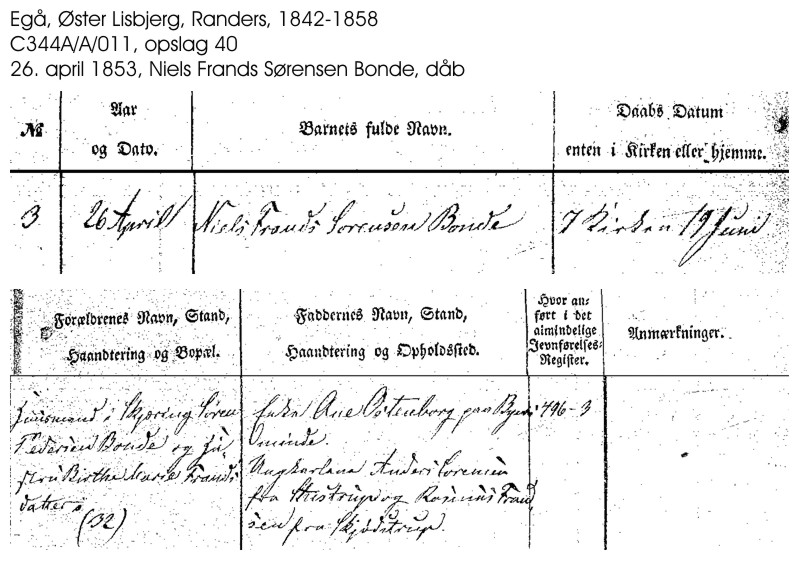 Egå, Øster Lisbjerg, Randers, 1842-1858
C344A/A/011, opslag 40
26. april 1853, Niels Frands Sørensen Bonde, dåb
№
Aar
og Dato.
Barnets fulde Navn.
Daabs Datum
enten i Kirken eller hjemme.
3
26 April
Niels Frands Sørensen Bonde
I Kirken 19 Juni
Forældrenes Navn, Stand,
Haandtering og Bopæl.
Faddernes Navn, Stand,
Haandtering og Opholdssted.
Hvor an-
ført i det
almindelige
Jevnførelses-
Register.
Anmærkninger.
Huusmand i Skjøring Søren
Pedersen Bonde og Hu-
stru Birthe Marie Frands
datter
(32)
Enke Ane Ostenborg paa
Ominde.
Ungkarlene Anders Sørensen
fra og Rasmus Frand
sen fra Skjødstrup.
796-3